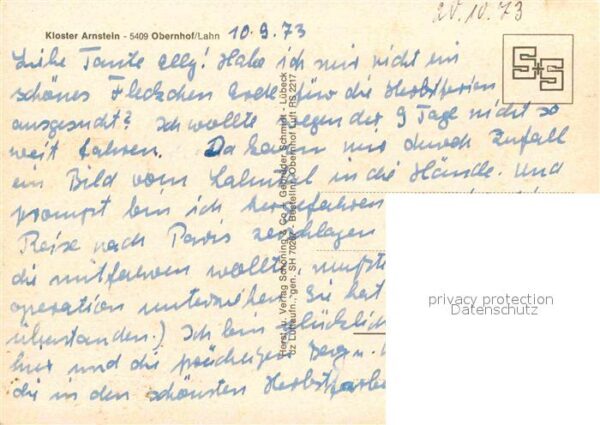 Kloster Arnstein - 5409 Obernhof/Lahn
10.9.73
20.10.73
Liebe Tante Elly! Habe ich mir nicht ein
schönes Fleckchen Erde für die Herbstferien
ausgesucht? Ich wollte wegen der 9 Tage nicht so
weit fahren. Da kam mir durch Zufall
ein Bild vom Lahntal in die Hände. Und
prompt bin ich hergefahren
Reise nach Paris zerschlagen
die mitfahren wollte, mußte
operation unterziehen. Sie hat
überstanden.) Ich bin glücklich
hier und die Berg
die in den schönsten Herbstfarben
S+S
Herst. u. Verlag Schöning & Co + Gebrüder Schmidt - Lübeck
Luft RS 2217
privacy protection
Datenschutz